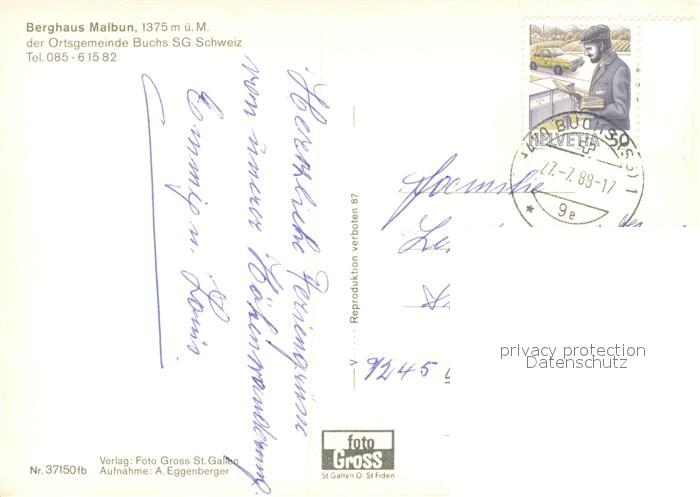 Berghaus Malbun, 1375 m ü. M.
der Ortsgemeinde Buchs SG Schweiz
Tel. 085 - 6 15 82
Herzliche Feriengrüsse
von unserer Höhenwanderung.
Emmy u. Louis
HELVETIA
BUCHS (SG) 1
27.-7.88-17
9e
Familie
9245
V
Reproduktion verboten 87
privacy protection
Datenschutz
foto
Gross
St Gallen O. St Fiden
Verlag: Foto Gross St. Gallen
Nr. 37150fb Aufnahme: A. Eggenberger